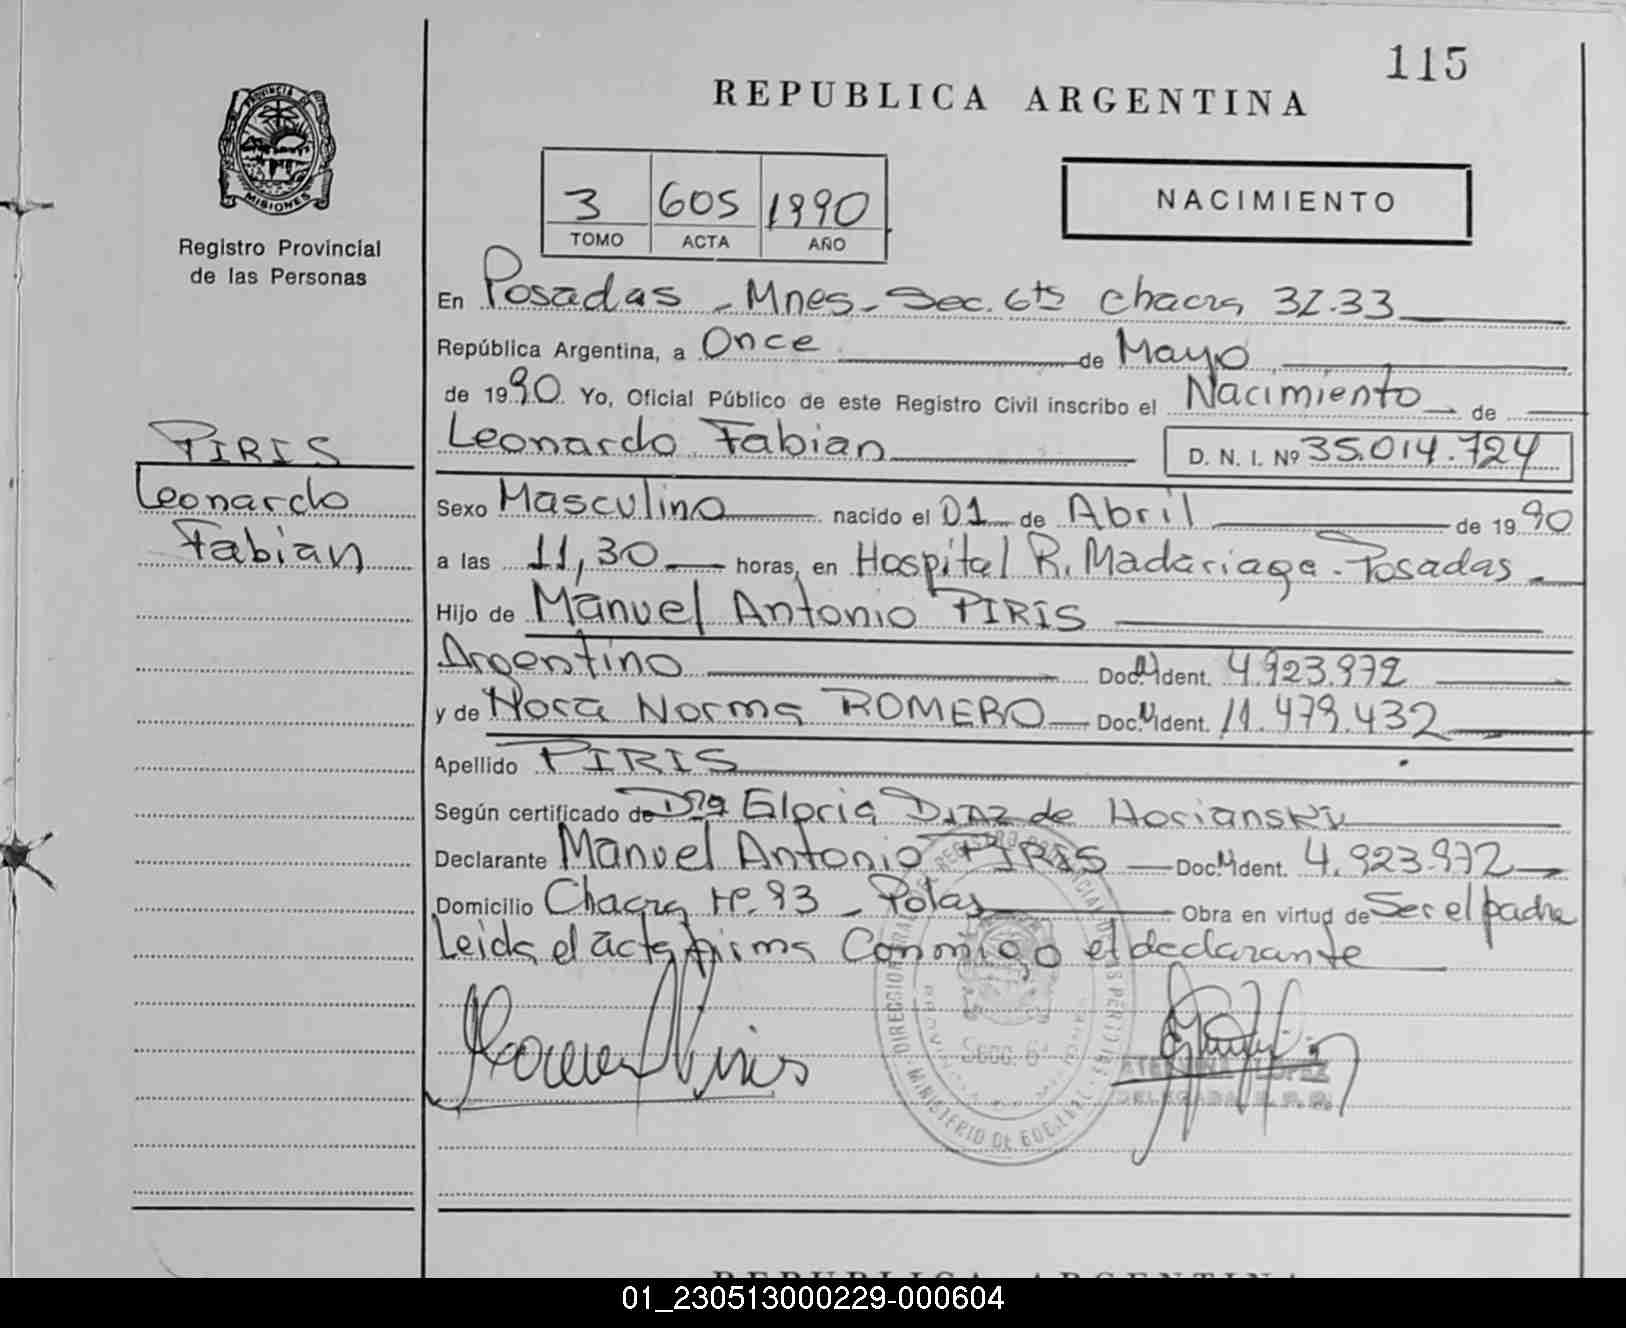 115
REPUBLICA ARGENTINA
PROVINCIA DE
MISIONES
Registro Provincial
de las Personas
3 605 1990
TOMO ACTA AÑO
NACIMIENTO
En Posadas - Mnes - Sec. 6ta Chacra 32-33
República Argentina, a Once de Mayo
de 1990. Yo, Oficial Público de este Registro Civil inscribo el Nacimiento de
Leonardo Fabian D. N. I. Nº 35.014.724
PIRIS
Leonardo
Fabian
Sexo Masculino nacido el 01 de Abril de 1990
a las 11,30 horas, en Hospital R. Madariaga - Posadas -
Hijo de Manuel Antonio PIRIS
Argentino Doc. Ident. 4.923.972
y de Nora Norma ROMERO Doc. Ident. 11.479.432
Apellido PIRIS
Según certificado de Dra Gloria DIAZ de
Declarante Manuel Antonio PIRIS Doc. Ident. 4.923.972
Domicilio Chacra Nº 93 - Obra en virtud de Ser el padre
Leida el acta firma Conmigo el declarante
Secc. 6ª
LOPEZ
DELEGADA
REPUBLICA ARGENTINA
01_230513000229-000604